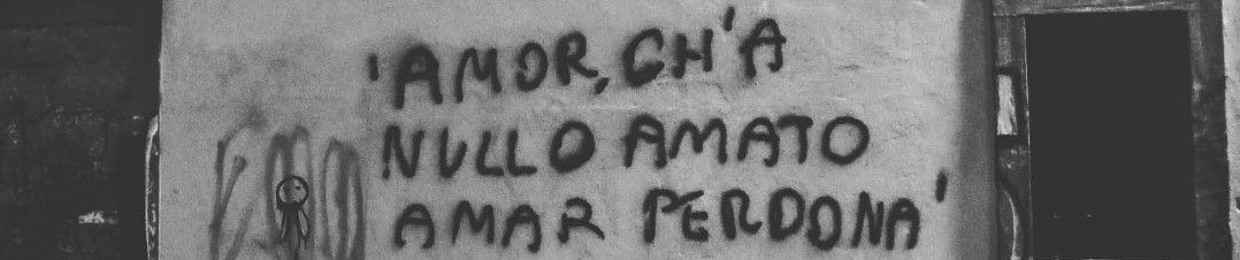 'AMOR, CH'A
NULLO AMATO
AMAR PERDONA'